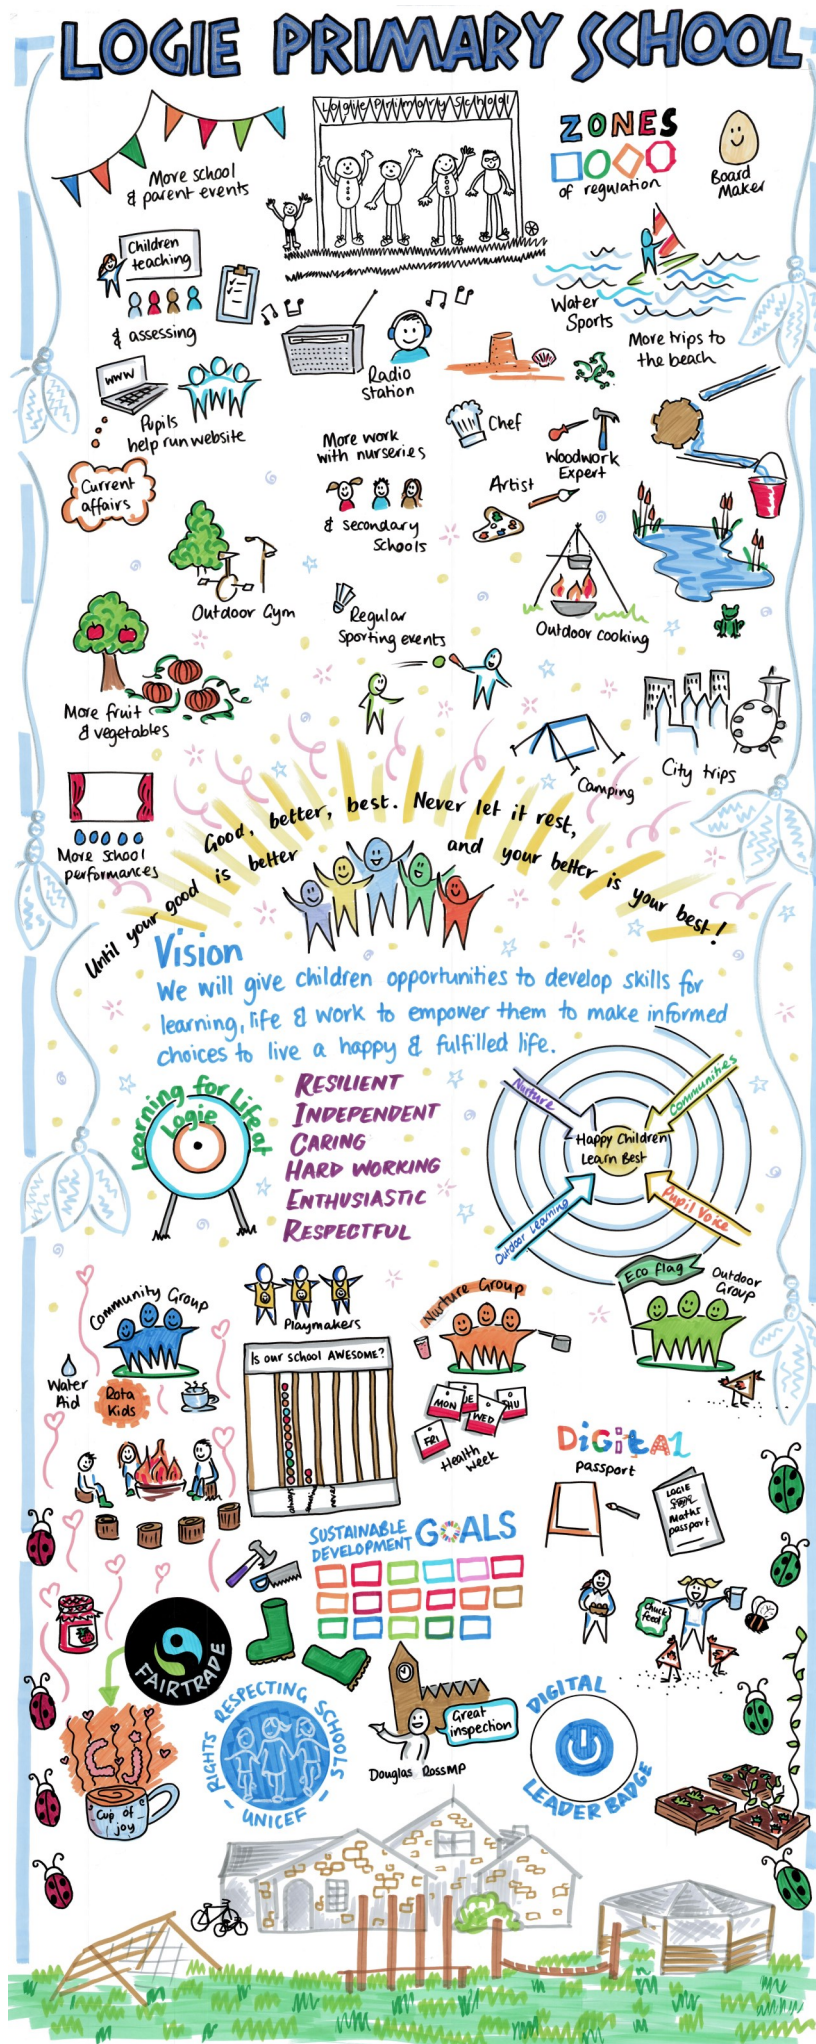 LOGIE PRIMARY SCHOOL
Logie Primary School
More school
& parent events
ZONES
of regulation
Board
Maker
Children
teaching
& assessing
Water
Sports
More trips to
the beach
Radio
Station
www
Pupils
help run website
Chef
Woodwork
Expert
More work
with nurseries
& secondary
Schools
Current
affairs
Artist
Outdoor Gym
Regular
Sporting events
Outdoor cooking
More fruit
& vegetables
Camping
City trips
More school
performances
Good, better, best. Never let it rest,
Until your good is better
and your better is your best!
Vision
We will give children opportunities to develop skills for
learning, life & work to empower them to make informed
choices to live a happy & fulfilled life.
Learning for Life at
Logie
RESILIENT
INDEPENDENT
CARING
HARD WORKING
ENTHUSIASTIC
RESPECTFUL
Nurture
Communities
Happy Children
Learn Best
Outdoor Learning
Pupil Voice
Community Group
Playmakers
Nurture Group
Eco flag
Outdoor
Group
Water
Aid
Rota
Kids
Is our school AWESOME?
always
never
MON
UE
WED
HU
FRI
Health
Week
DiGitAl
passport
LOGIE
Maths
passport
SUSTAINABLE
DEVELOPMENT GOALS
Chuck
feed
FAIRTRADE
RIGHTS RESPECTING SCHOOLS
UNICEF
Great
inspection
Douglas Ross MP
DIGITAL
LEADER BADGE
CJ
Cup of
joy